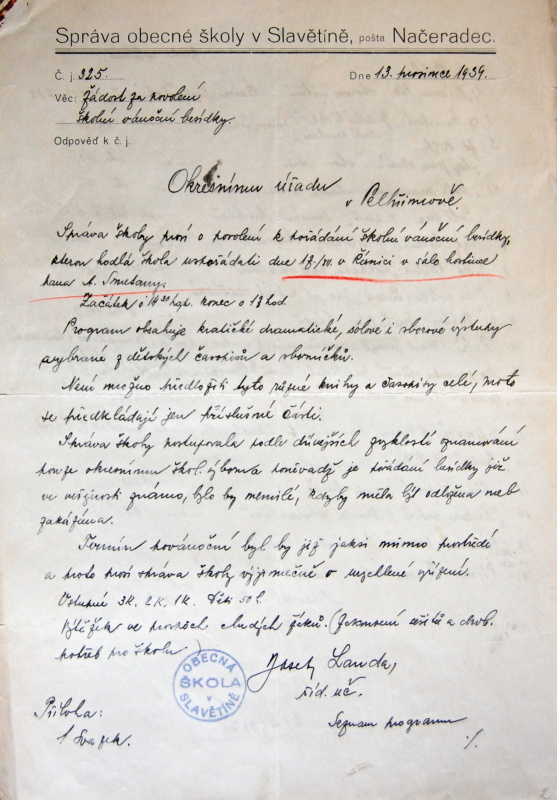 Správa obecné školy v Slavětíně, pošta Načeradec.
Č. j. 325. Dne 13. prosince 1939.
Věc: Žádost za povolení
školní vánoční besídky.
Odpověď k č. j.
Okresnímu úřadu
v Pelhřimově.
Správa školy prosí o povolení k pořádání školní vánoční besídky,
kterou hodlá škola uspořádati dne 17./XII. v Řísnici v sále hostince
pana A. Smetany.
Začátek o 14 30 hod. konec o 17 hod.
Program obsahuje kratičké dramatické, sólové i sborové výstupy
vybrané z dětských časopisů a sborníčků.
Není možno předložiti tyto různé knihy a časopisy celé, proto
se předkládají jen příslušné části.
Správa školy postupovala podle dřívějších zvyklostí oznamování
pouze okresnímu škol. výboru a poněvadž je pořádání besídky již
ve veřejnosti známo, bylo by nemilé, kdyby měla být odložena neb
zakázána.
Termín povánoční byl by již jaksi mimo prostředí
a proto prosí správa školy výjimečně o urychlené vyřízení.
Vstupné 3K, 2K, 1K. Děti 50 h.
Výtěžek ve prospěch chudých žáků. (Zakoupení sešitů a drob.
potřeb pro školu)
OBECNÁ ŠKOLA v SLAVĚTÍNĚ
Josef Landa,
říd. uč.
Příloha:
1 Svazek.
Seznam programu
./.